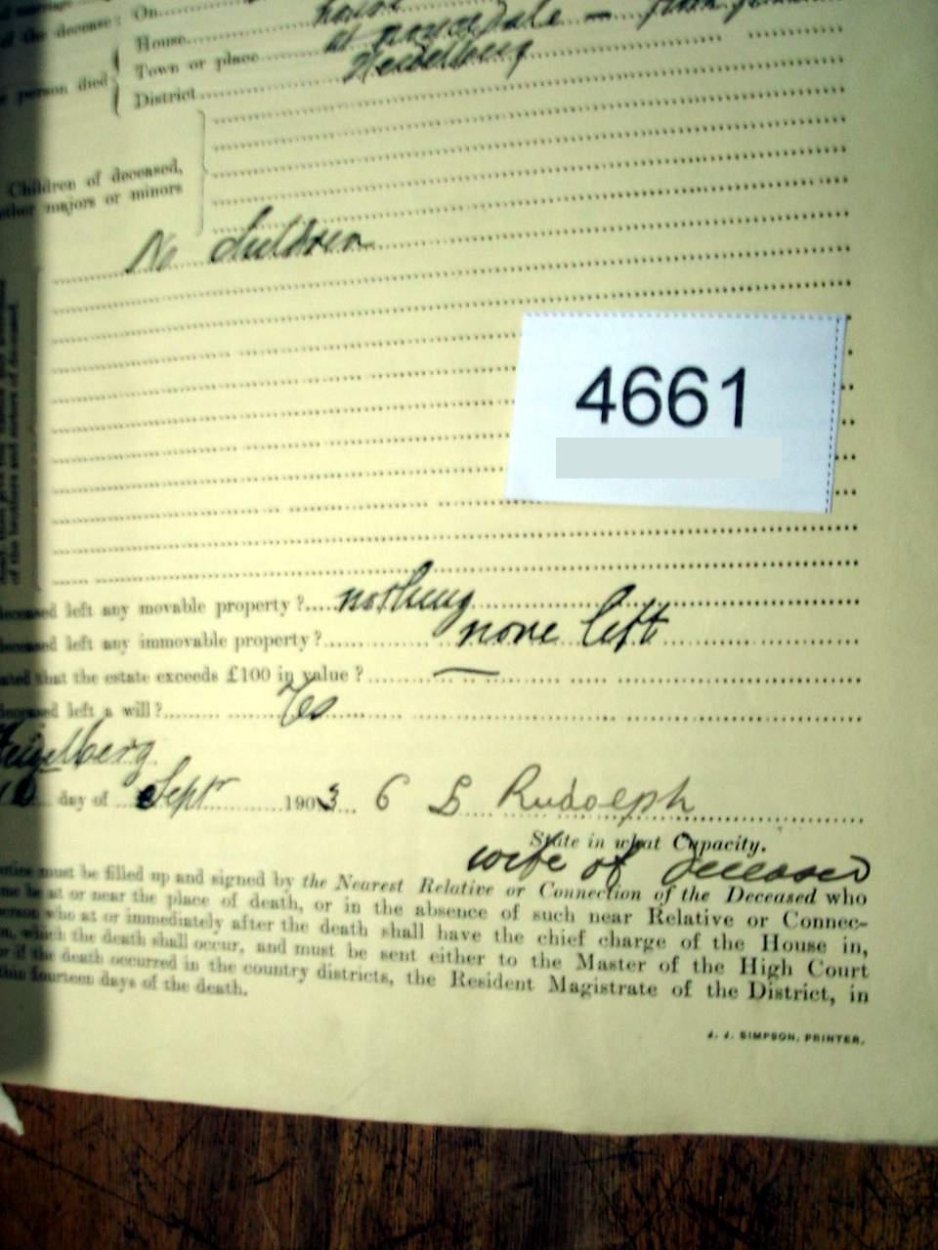 of the decease: On
House house
person died Town or place at
District Heidelberg
Children of deceased,
majors or minors
No Children
4661
left any movable property? nothing
left any immovable property? none left
that the estate exceeds £100 in value? —
left a will? Yes
day of Sept 1903 Rudolph
State in what Capacity.
wife of deceased
must be filled up and signed by the Nearest Relative or Connection of the Deceased who
be at or near the place of death, or in the absence of such near Relative or Connec-
who at or immediately after the death shall have the chief charge of the House in,
which the death shall occur, and must be sent either to the Master of the High Court
if the death occurred in the country districts, the Resident Magistrate of the District, in
fourteen days of the death.
J. J. SIMPSON, PRINTER.